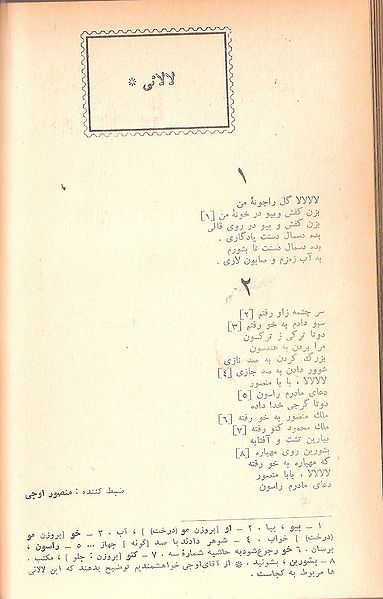 لالائی *
۱
لالالالا گل راجونهٔ من
بزن کفش و بیو در خونهٔ من [۱]
بزن کفش و بیو در روی قالی
بده دسمال دستت یادگاری .
بده دسمال دستت تا بشورم
به آب زمزم و صابون لاری .
۲
سر چشمه زاو رفتم [۲]
سبو دادم به خو رفتم [۳]
دوتا ترکی ز ترکسون
مرا بردن به هندسون
بزرگ کردن به صد نازی
شوور دادن به صد جازی [۴]
لالالالا ، با با منصور
دعای مادرم راسون [۵]
دوتا گرجی خدا داده
ملك منصور به خو رفته [۶]
ملك محمود کتو رفته [۷]
بیارین تشت و آفتابه
بشورین روی مهپاره [۸]
که مهپاره به خو رفته
لالالا ، بابا منصور
دعای مادرم راسون
ضبط کننده : منصور اوجی
۱ – بیو ، بیا . ۲ – او [بروزن مو (درخت) ] ، آب . ۳ – خو [بروزن مو
(درخت) ] خواب . ۴ – شوهر دادند با صد [گونه ] جهاز ... ۵ – راسون ،
برسان . ۶ خو رجوع‌شود به حاشیه شمارهٔ سه . ۷ – کتو [بروزن : جلو ] ، مکتب .
۸ – بشورین ، بشوئید . * از آقای‌اوجی خواهشمندیم توضیح بدهند که این لالائی
ها مربوط به کجاست .